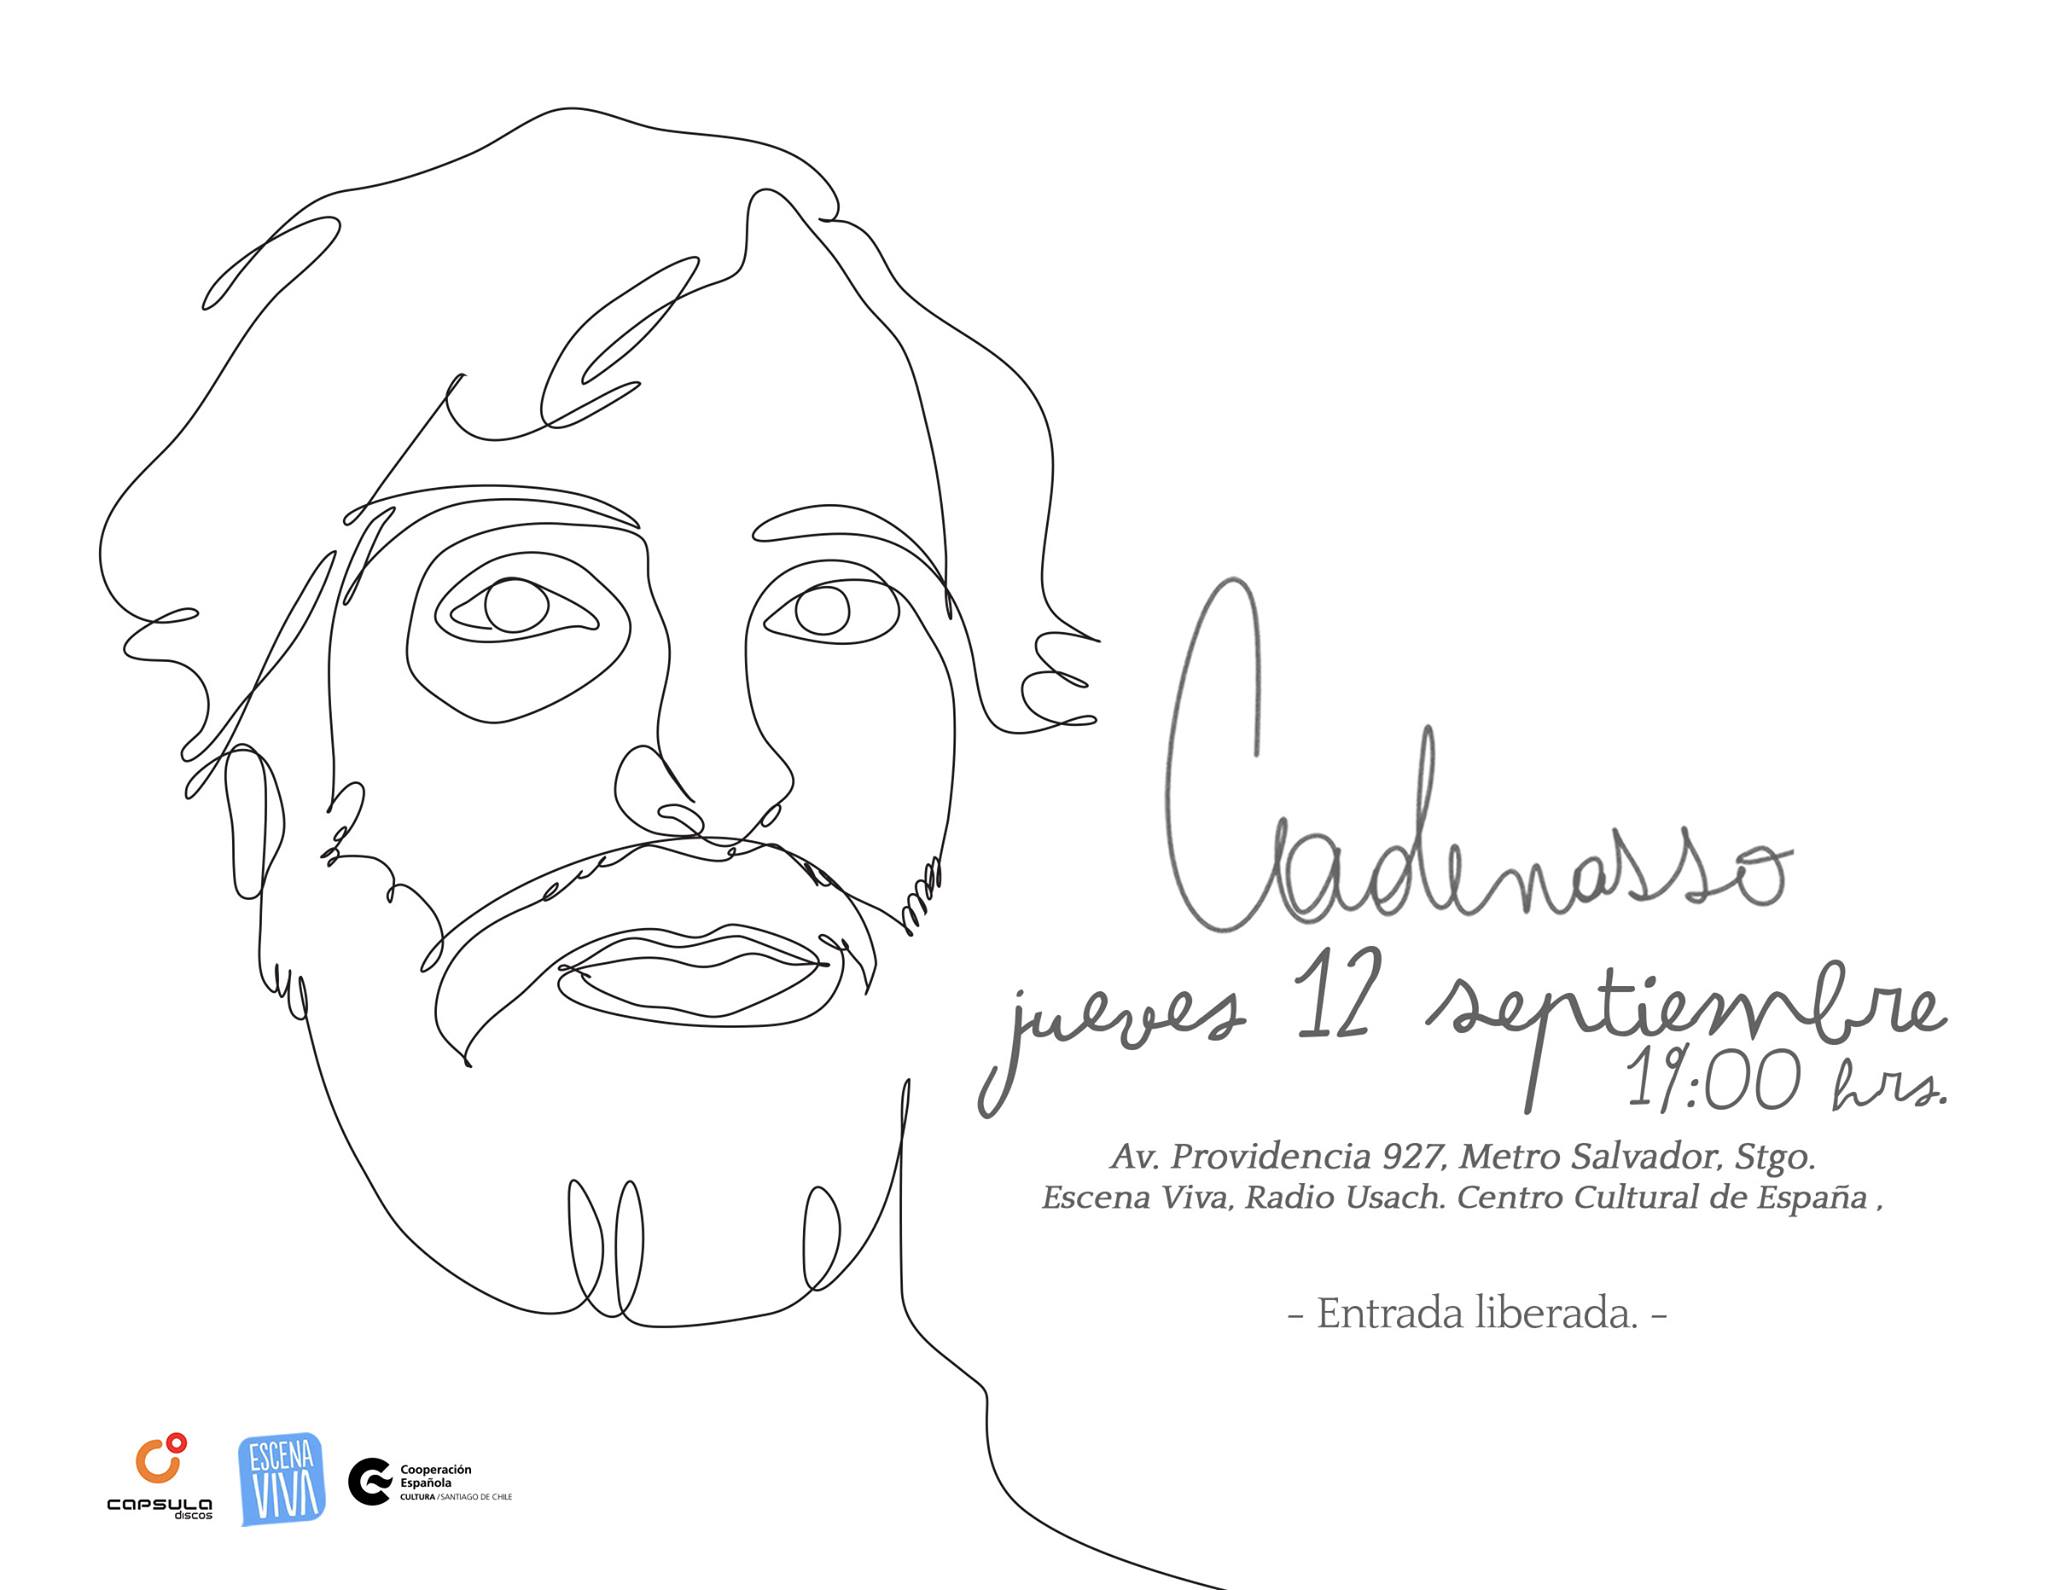 Cadenasso
jueves 12 septiembre
19:00 hrs.
Av. Providencia 927, Metro Salvador, Stgo.
Escena Viva, Radio Usach. Centro Cultural de España ,
- Entrada liberada. -
CAPSULA
discos
ESCENA
VIVA
Cooperación
Española
CULTURA / SANTIAGO DE CHILE